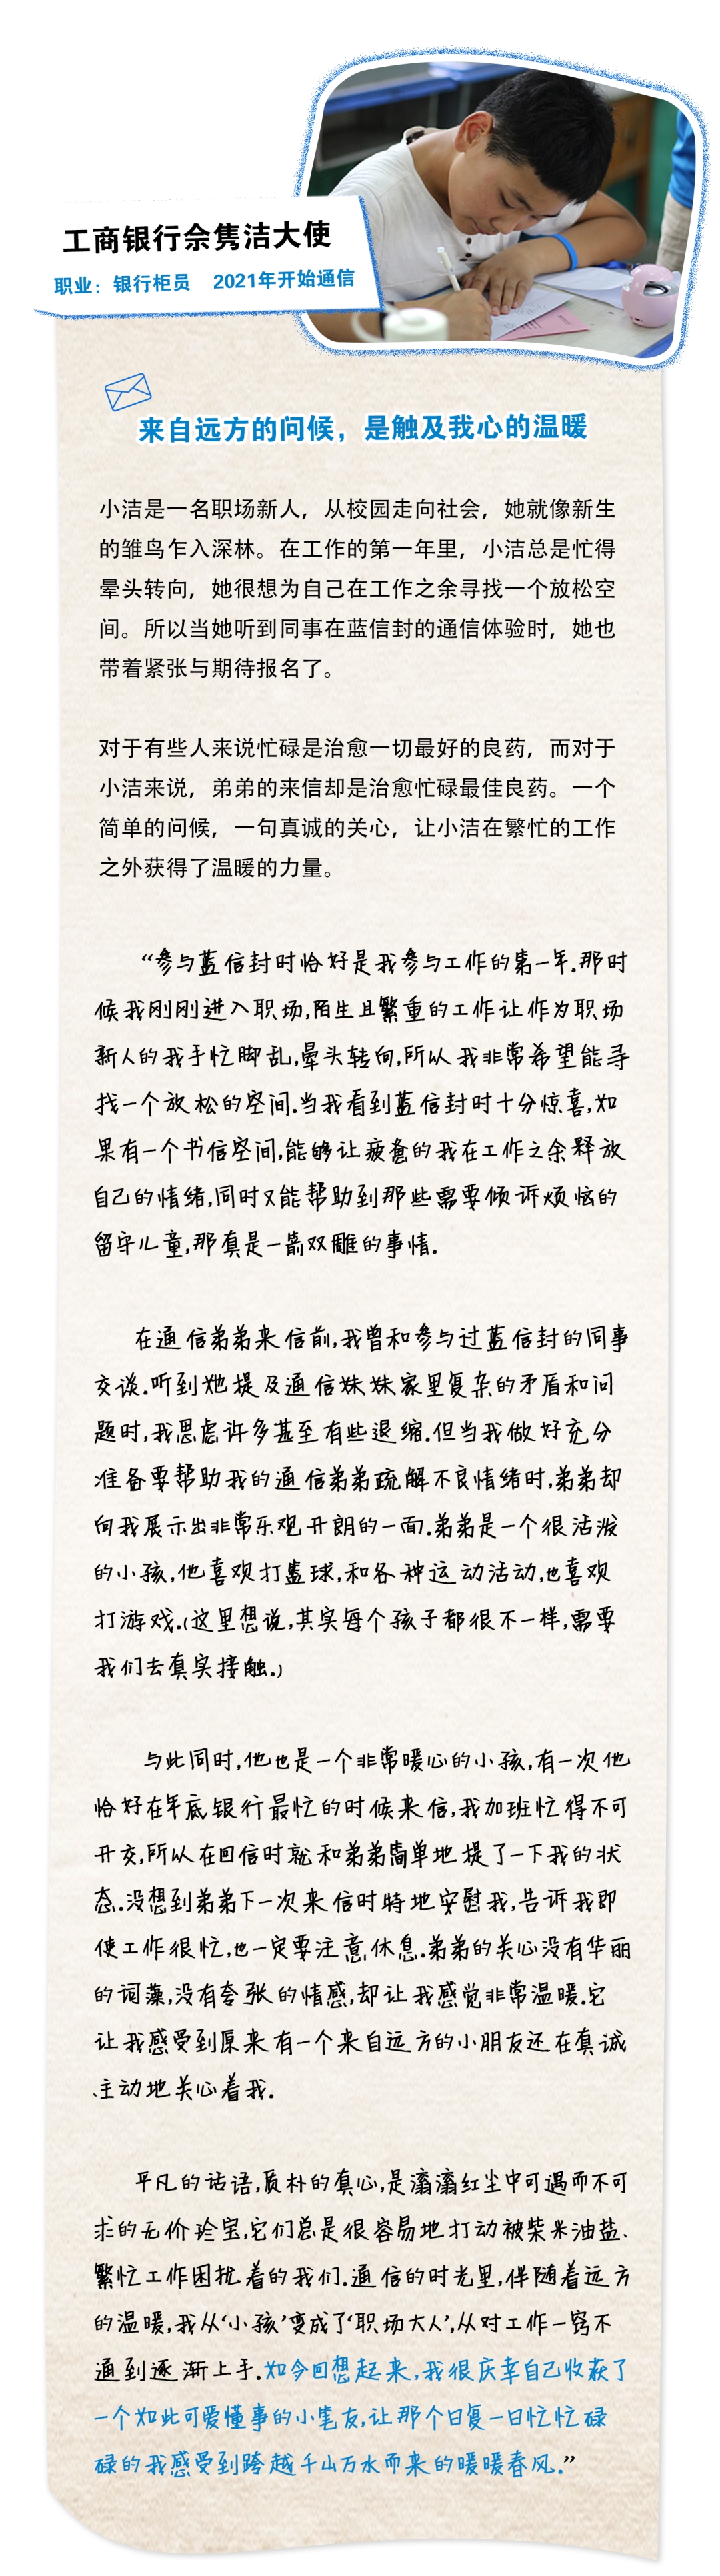 工商银行余隽洁大使
职业：银行柜员 2021年开始通信
来自远方的问候，是触及我心的温暖
小洁是一名职场新人，从校园走向社会，她就像新生
的雏鸟乍入深林。在工作的第一年里，小洁总是忙得
晕头转向，她很想为自己在工作之余寻找一个放松空
间。所以当她听到同事在蓝信封的通信体验时，她也
带着紧张与期待报名了。
对于有些人来说忙碌是治愈一切最好的良药，而对于
小洁来说，弟弟的来信却是治愈忙碌最佳良药。一个
简单的问候，一句真诚的关心，让小洁在繁忙的工作
之外获得了温暖的力量。
“参与蓝信封时恰好是我参与工作的第一年.那时
候我刚刚进入职场,陌生且繁重的工作让作为职场
新人的我手忙脚乱,晕头转向,所以我非常希望能寻
找一个放松的空间.当我看到蓝信封时十分惊喜,如
果有一个书信空间,能够让疲惫的我在工作之余释放
自己的情绪,同时又能帮助到那些需要倾诉烦恼的
留守儿童,那真是一箭双雕的事情.
在通信弟弟来信前,我曾和参与过蓝信封的同事
交谈.听到她提及通信妹妹家里复杂的矛盾和问
题时,我思虑许多甚至有些退缩.但当我做好充分
准备要帮助我的通信弟弟疏解不良情绪时,弟弟却
向我展示出非常乐观开朗的一面.弟弟是一个很活泼
的小孩,他喜欢打篮球,和各种运动活动,也喜欢
打游戏.(这里想说,其实每个孩子都很不一样,需要
我们去真实接触.)
与此同时,他也是一个非常暖心的小孩,有一次他
恰好在年底银行最忙的时候来信,我加班忙得不可
开交,所以在回信时就和弟弟简单地提了一下我的状
态.没想到弟弟下一次来信时特地安慰我,告诉我即
使工作很忙,也一定要注意休息.弟弟的关心没有华丽
的词藻,没有夸张的情感,却让我感觉非常温暖.它
让我感受到原来有一个来自远方的小朋友还在真诚
、主动地关心着我.
平凡的话语,质朴的真心,是滚滚红尘中可遇而不可
求的无价珍宝,它们总是很容易地打动被柴米油盐、
繁忙工作困扰着的我们.通信的时光里,伴随着远方
的温暖,我从‘小孩’变成了‘职场大人’,从对工作一窍不
通到逐渐上手.如今回想起来,我很庆幸自己收获了
一个如此可爱懂事的小笔友,让那个日复一日忙忙碌
碌的我感受到跨越千山万水而来的暖暖春风.”